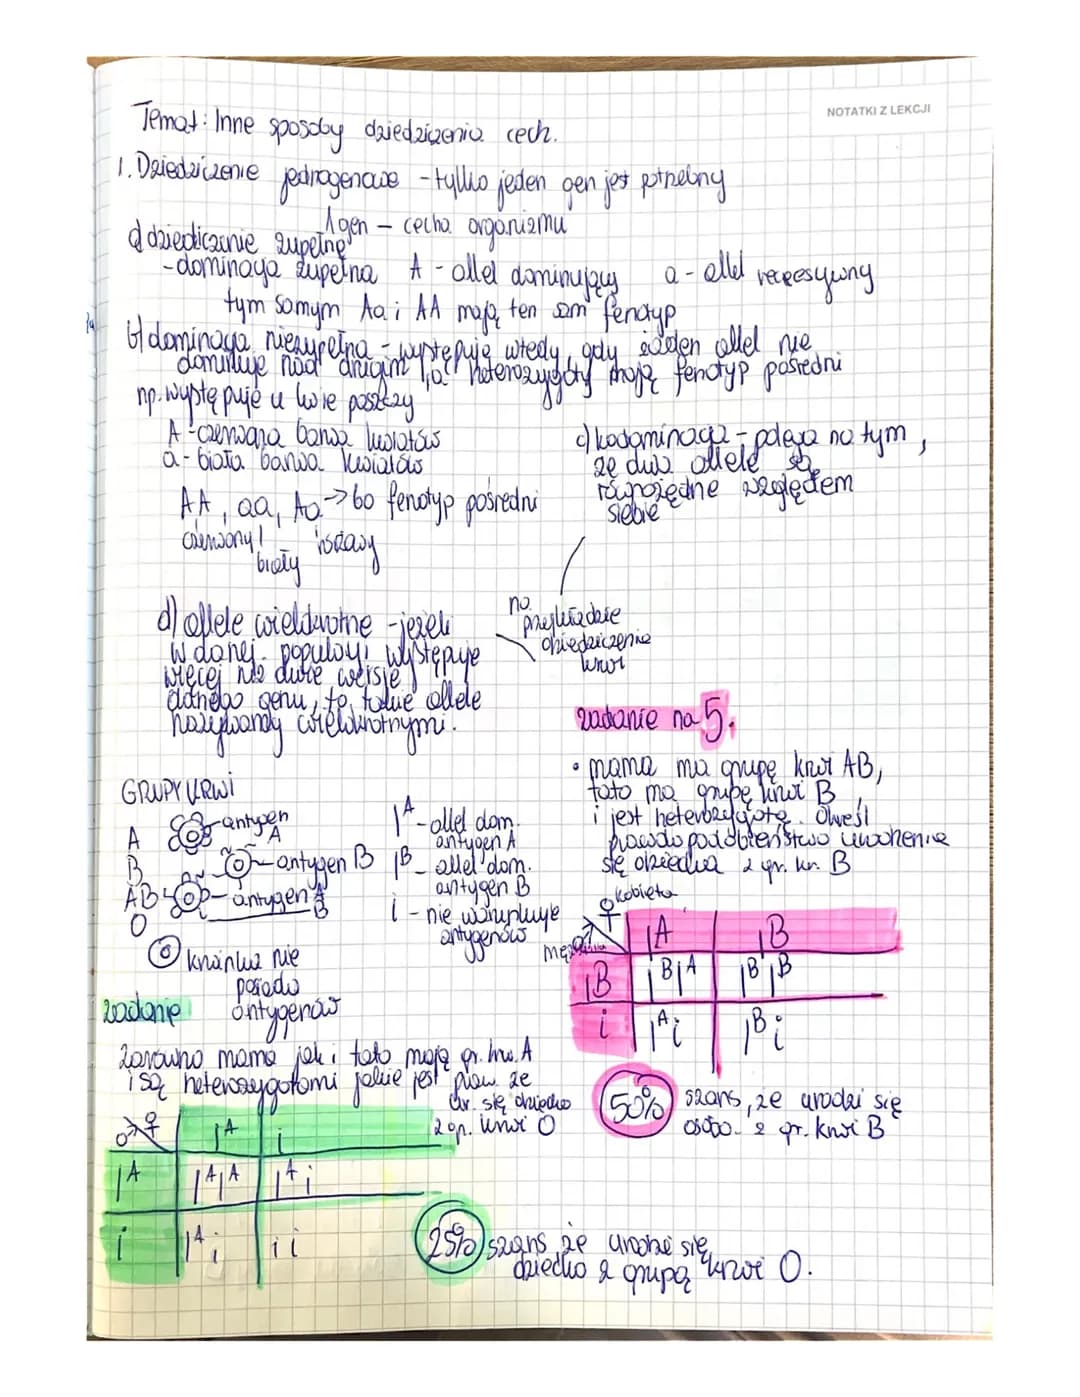 NOTATKI Z LEKCJI
Temat: Inne sposoby dziedziczenia cech.
1. Dziedziczenie jednogenowe - tylko jeden gen jest potrzebny
1 gen - cecha organizmu
a) dziedziczenie zupełne
- dominacja zupełna A - allel dominujący a - allel recesywny
tym samym Aa i AA mają ten sam fenotyp
b) dominacja niezupełna - występuje wtedy, gdy żaden allel nie
dominuje nad drugim, a heterozygoty mają fenotyp pośredni
np. występuje u lwie paszczy
A - czerwona barwa kwiatów
a - biała barwa kwiatów
AA, aa, Aa -> bo fenotyp pośredni
czerwony biały różowy
c) kodominacja - polega na tym,
że dwa allele są
równorzędne względem
siebie
na
przykładzie
dziedziczenia
krwi
d) allele wielokrotne - jeżeli
w danej populacji występuje
więcej niż dwie wersje
danego genu, to takie allele
nazywamy wielokrotnymi.
GRUPY KRWI
A antygen A
B antygen B
AB antygen A B
O
krwinka nie
posiada
antygenów
I^A - allel dom.
antygen A
I^B - allel dom.
antygen B
i - nie warunkuje
antygenów
zadanie na 5.
• mama ma grupę krwi AB,
tato ma grupę krwi B
i jest heterozygotą. Określ
prawdopodobieństwo urodzenia
się dziecka z gr. kr. B
♀ kobieta
♂ mężczyzna
I^A I^B
I^B I^B I^A I^B I^B
i I^A i I^B i
50% szans, że urodzi się
osoba z gr. krwi B
zadanie
Zarówno mama jak i tato mają gr. krw. A
i są heterozygotami jakie jest praw. że
ur. się dziecko
z gr. krwi O
♂ ♀ I^A i
I^A I^A I^A I^A i
i I^A i i i
25% szans że urodzi się
dziecko z grupą krwi O.